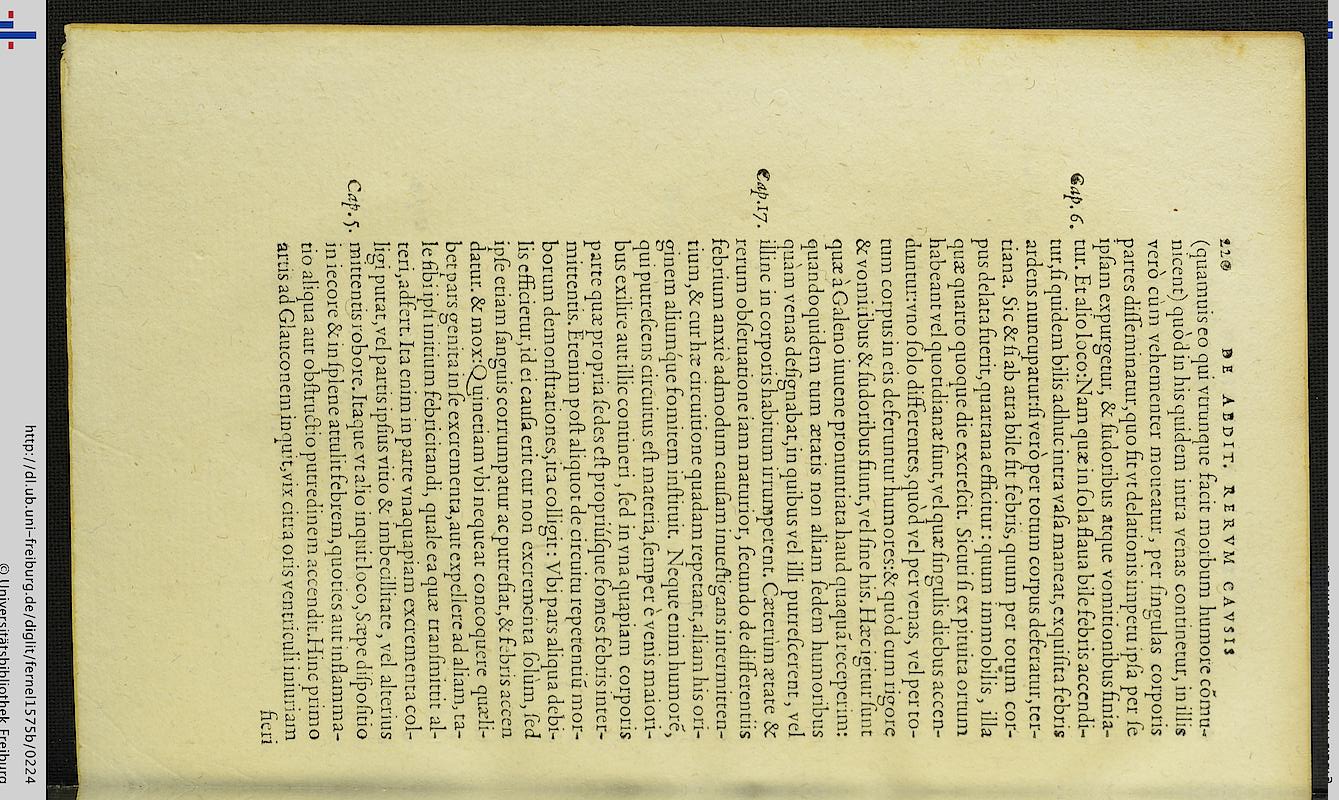 220 DE ABDIT. RERVM CAVSIS
(quamuis eo qui vtrunque facit morbum humore cõmu-
nicent) quòd in his quidem intra venas continetur, in illis
verò cùm vehementer moueatur, per singulas corporis
partes disseminatur, quo fit vt delationis impetu ipsa per se
ipsam expurgetur, & sudoribus atque vomitionibus finia-
Cap. 6. tur. Et alio loco: Nam quæ in sola flaua bile febris accendi-
tur, si quidem bilis adhuc intra vasa maneat, exquisita febris
ardens nuncupatur: si verò per totum corpus deferatur, ter-
tiana. Sic & si ab atra bile sit febris, quum per totum cor-
pus delata fuerit, quartana efficitur: quum immobilis, illa
quæ quarto quoque die excrescit. Sicuti si ex pituita ortum
habeant vel quotidianæ sunt, vel quæ singulis diebus accen-
duntur: vno solo differentes, quòd vel per venas, vel per to-
tum corpus in eis deferuntur humores: & quòd cum rigore
& vomitibus & sudoribus fiunt, vel sine his. Hæc igitur sunt
quæ à Galeno iuuene pronuntiata haud quaquã receperim:
quandoquidem tum ætatis non aliam sedem humoribus
quàm venas designabat, in quibus vel illi putrescerent, vel
Cap. 17. illinc in corporis habitum irrumperent. Cæterùm ætate &
rerum obseruatione iam maturior, secundo de differentiis
febrium anxiè admodum causam inuestigans intermitten-
tium, & cur hæ circuitione quadam repetant, aliam his ori-
ginem aliumque fomitem instituit. Neque enim humorẽ,
qui putrescens circuitus est materia, semper è venis maiori-
bus exilire aut illic contineri, sed in vna quapiam corporis
parte quæ propria sedes est propriúsque fomes febris inter-
mittentis. Etenim post aliquot de circuitu repetentiũ mor-
borum demonstrationes, ita colligit: Vbi pars aliqua debi-
lis efficietur, id ei causa erit cur non excrementa solùm, sed
ipse etiam sanguis corrumpatur ac putrefiat, & febris accen
datur. & mox: Quinetiam vbi nequeat concoquere quæli-
bet pars genita in se excrementa, aut expellere ad aliam, ta-
le sibi ipsi initium febricitandi, quale ea quæ transmittit al-
teri, adfert. Ita enim in parte vnaquapiam excrementa col-
ligi putat, vel partis ipsius vitio & imbecillitate, vel alterius
Cap. 5. mittentis robore. Itaque vt alio inquit loco, Sæpe dispositio
in iecore & in splene attulit febrem, quoties aut inflamma-
tio aliqua aut obstructio putredinem accendit. Hinc primo
artis ad Glauconem inquit, vix citra oris ventriculi iniuriam
fieri
http://dl.ub.uni-freiburg.de/diglit/fernel1575b/0224
© Universitätsbibliothek Freiburg